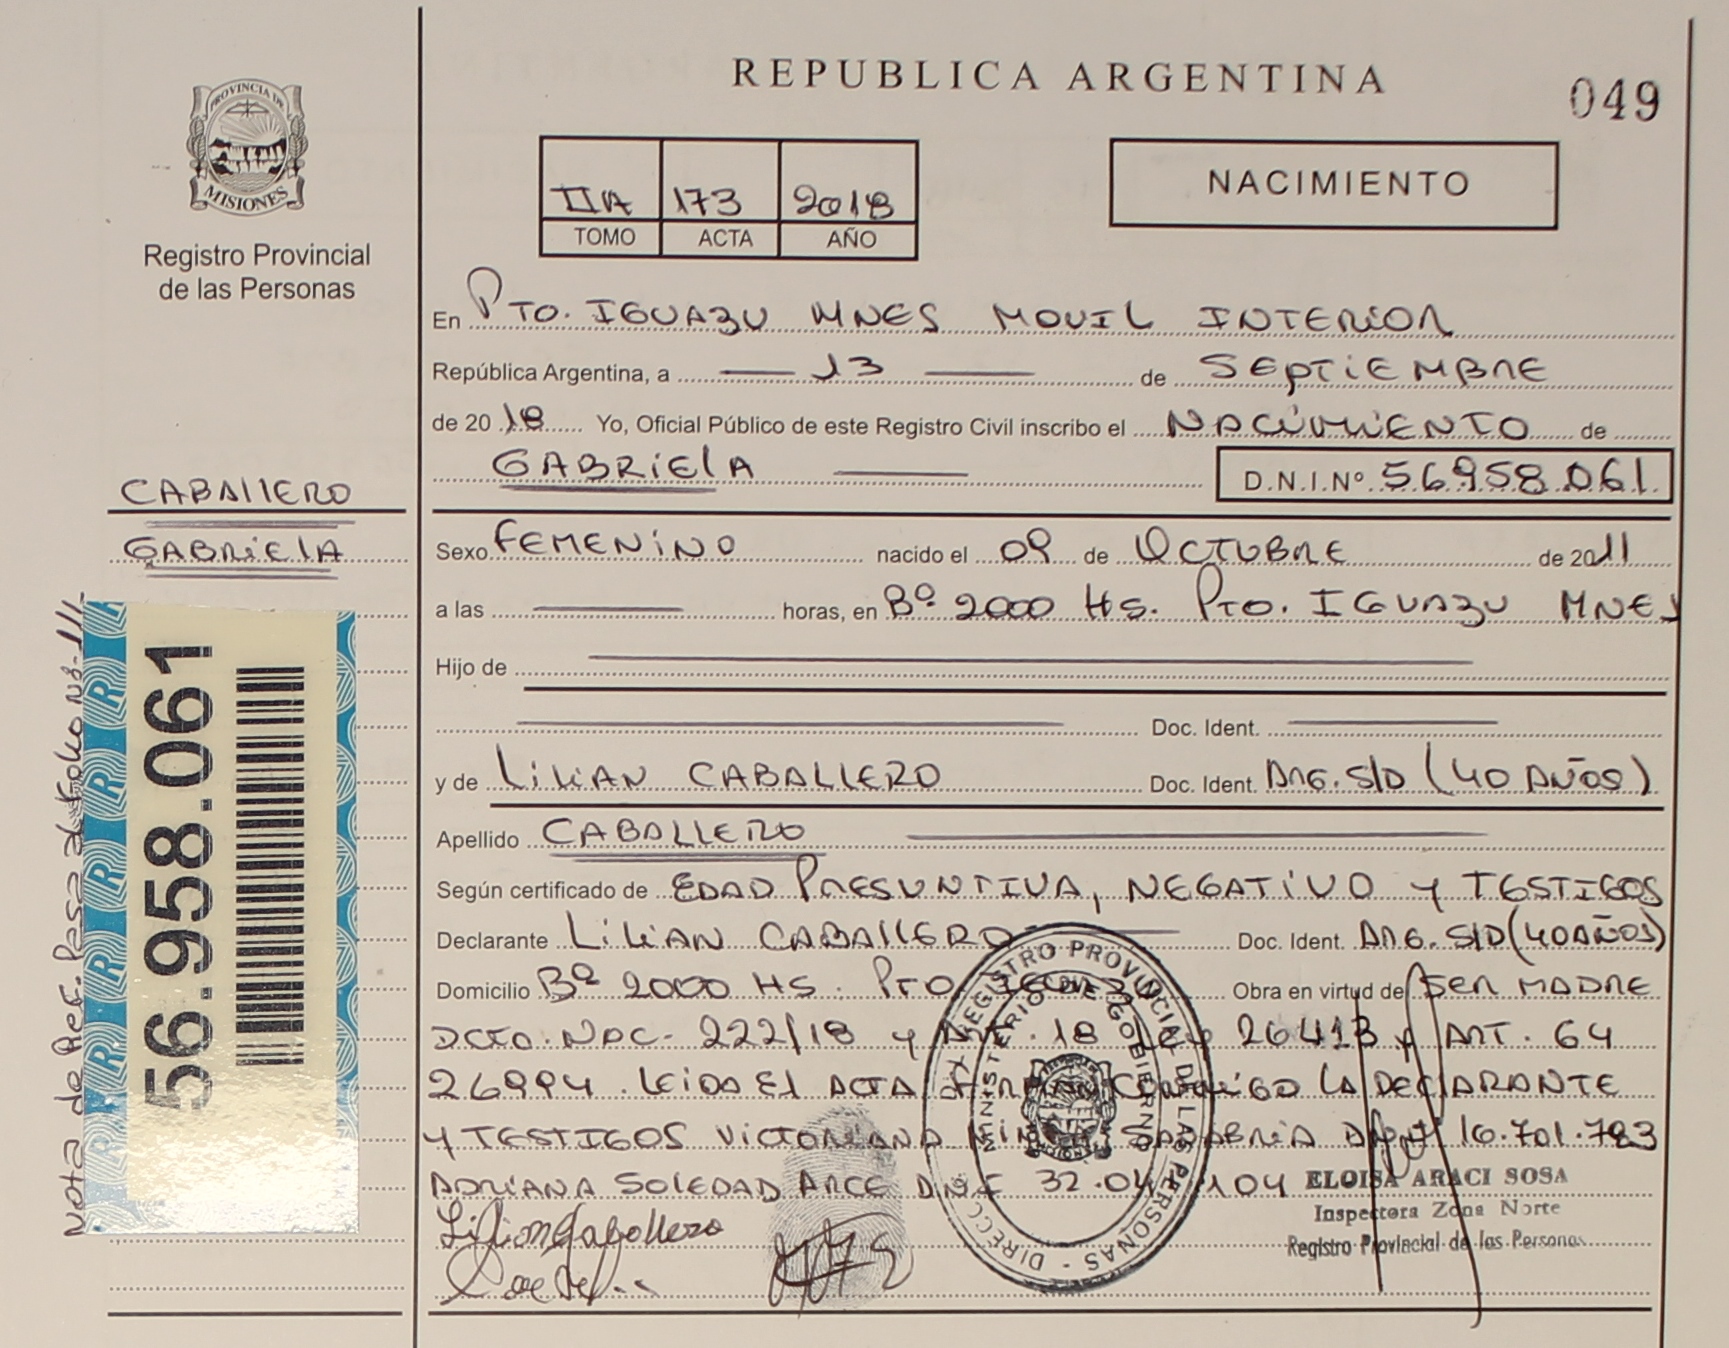 REPUBLICA ARGENTINA
049
PROVINCIA DE
MISIONES
Registro Provincial
de las Personas
IIA 173 2018
TOMO ACTA AÑO
NACIMIENTO
En PTO. IGUAZU MNES MOVIL INTERIOR
República Argentina, a 13 de SEPTIEMBRE
de 2018 Yo, Oficial Público de este Registro Civil inscribo el NACIMIENTO de
GABRIELA D.N.I.Nº 56958.061
CABALLERO
GABRIELA
Sexo FEMENINO nacido el 09 de OCTUBRE de 2011
a las horas, en Bº 2000 HS. PTO. IGUAZU MNES
Hijo de
Doc. Ident.
y de LILIAN CABALLERO Doc. Ident. ARG. S/D (40 AÑOS)
Apellido CABALLERO
Según certificado de EDAD PRESUNTIVA, NEGATIVO Y TESTIGOS
Declarante LILIAN CABALLERO Doc. Ident. ARG. S/D (40 AÑOS)
Domicilio Bº 2000 HS. PTO IGUAZU Obra en virtud de SER MADRE
DCTO. NAC. 222/18 y ART. 18 LEY 26413 y ART. 64
26994. LEIDA El ACTA FIRMAN CONMIGO LA DECLARANTE
Y TESTIGOS VICTORIANA SANABRIA DNI 16.701.783
ADRIANA SOLEDAD ARCE DNI 32.04 104
ELOISA ARACI SOSA
Inspectora Zona Norte
Registro Provincial de las Personas
Lilian Caballero
DIRECC. REGISTRO PROVINCIAL DE LAS PERSONAS
MINISTERIO DE GOBIERNO
56.958.061
R R R R R R
Nota de Ref. Pasa al Folio Nº 111